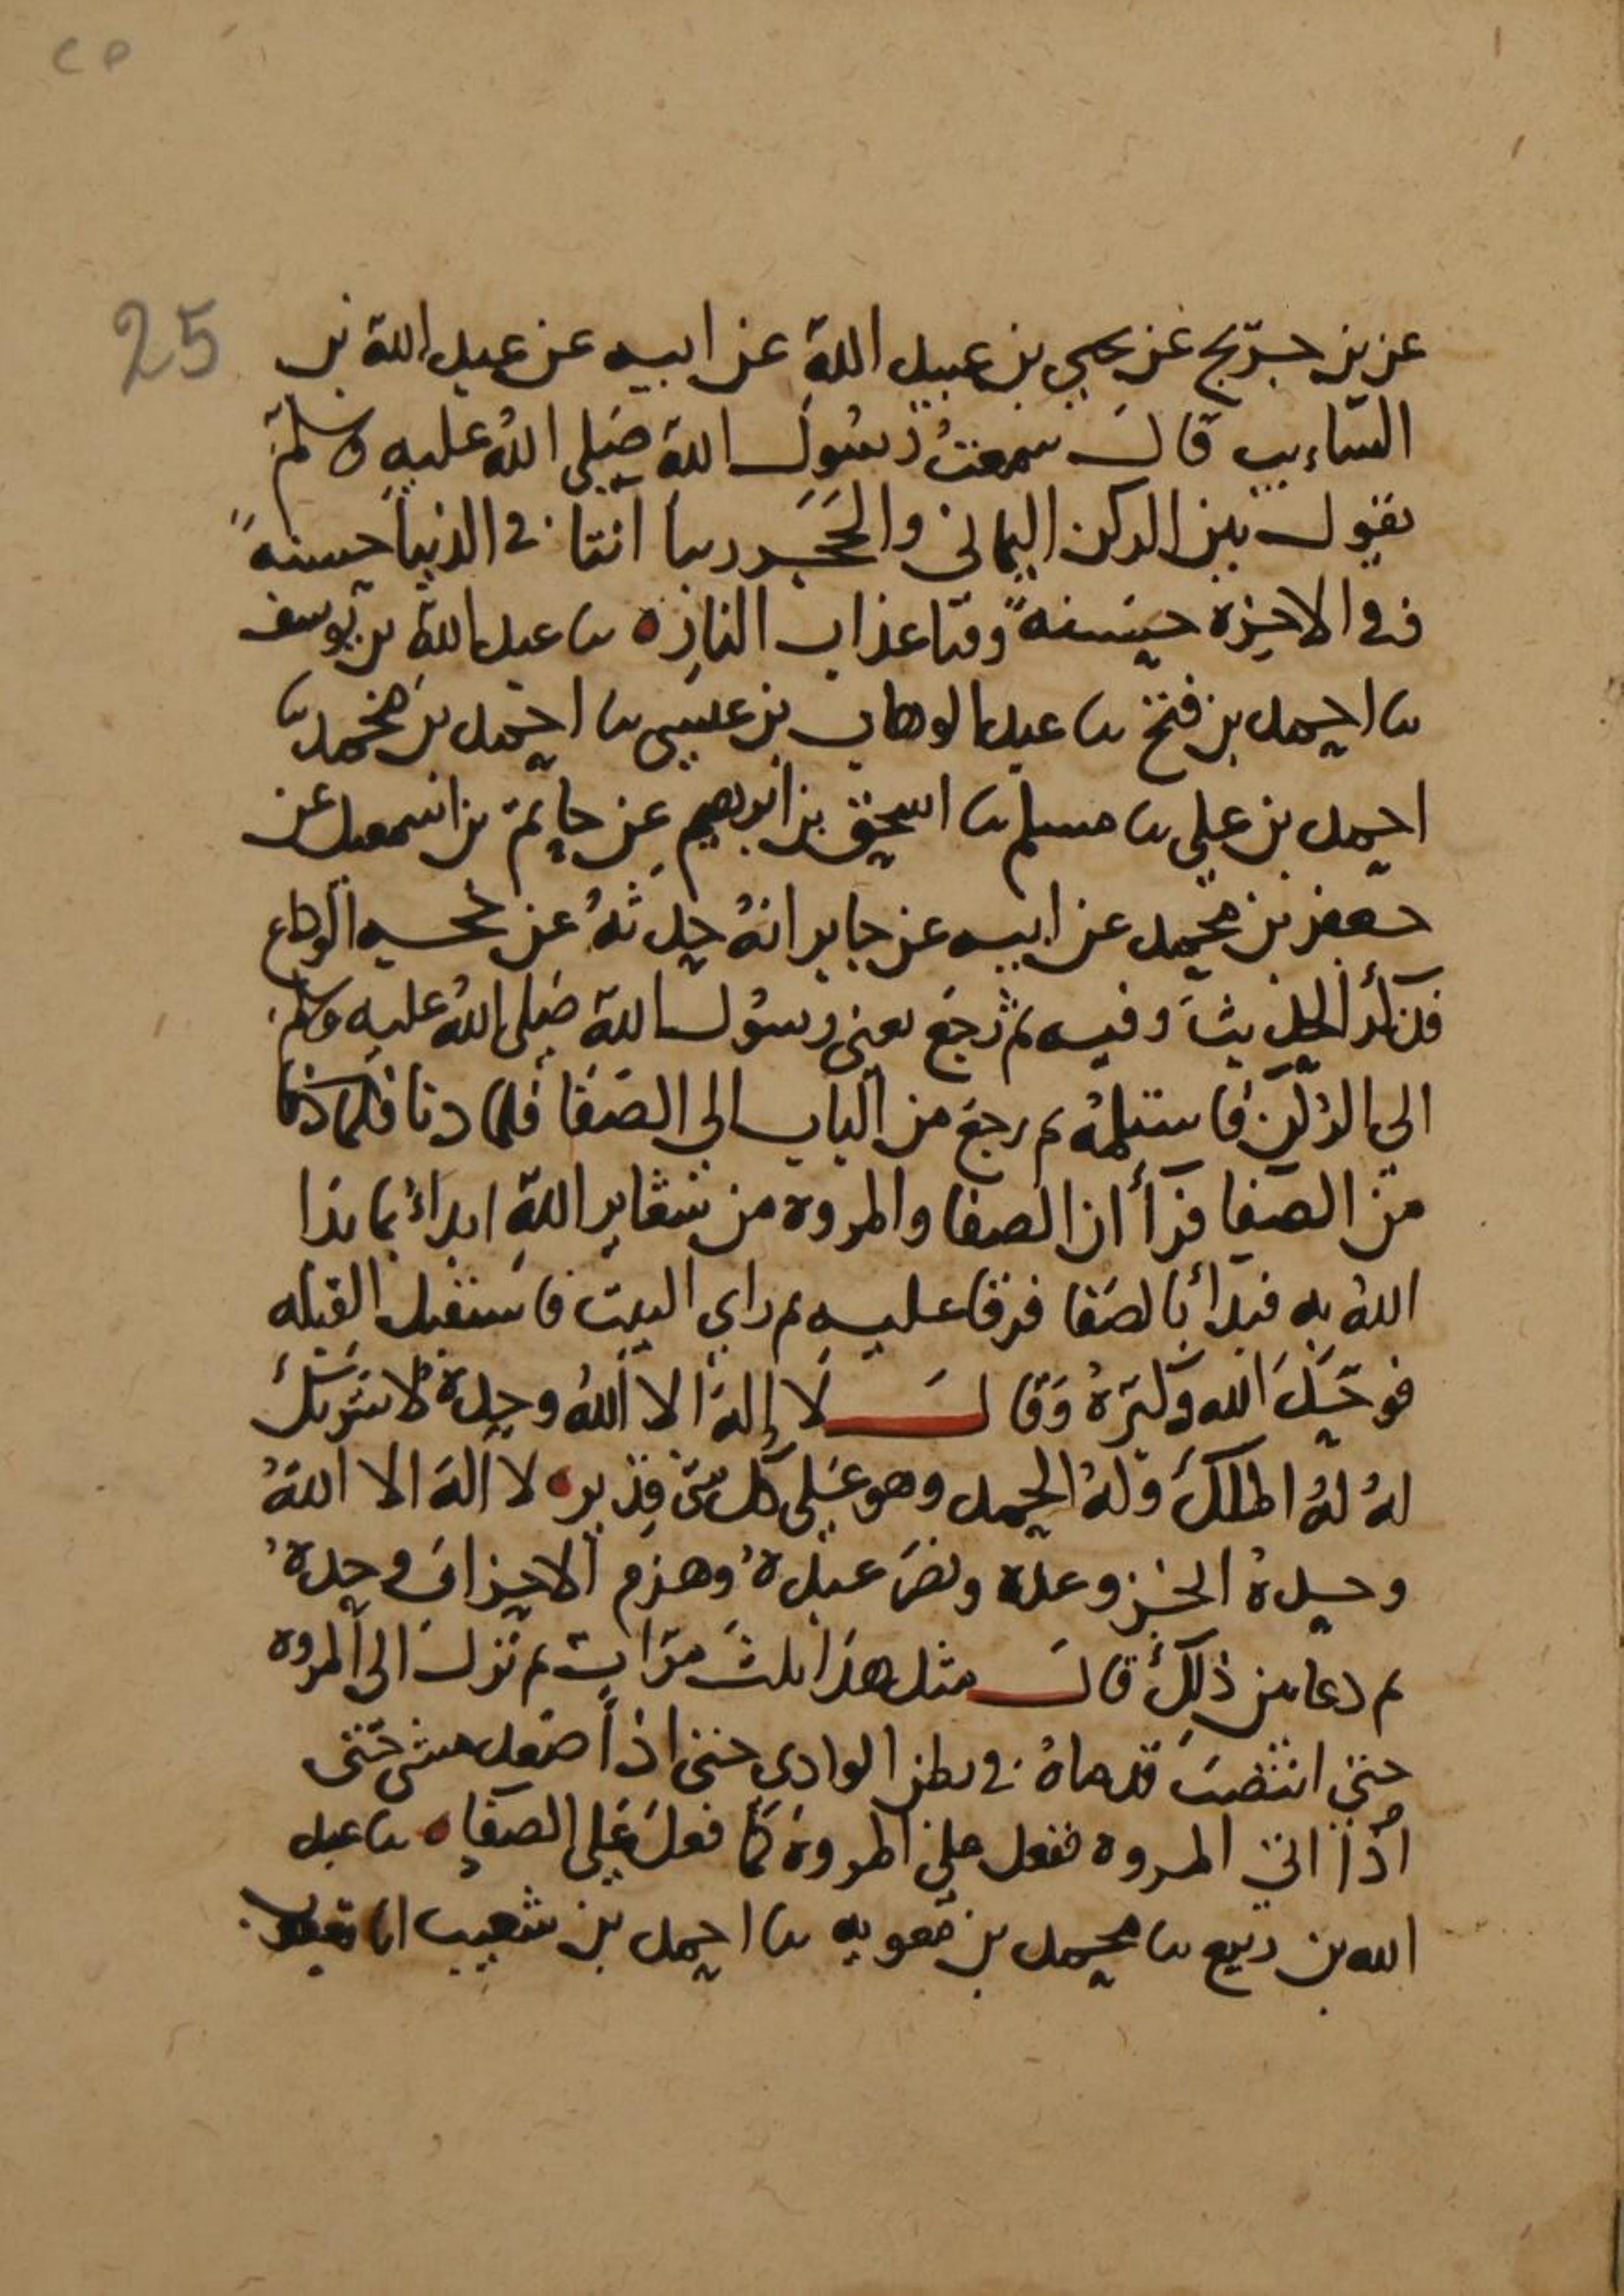 ٢٥
25
عن بن جريج عن يحيى بن عبيد الله عن ابيه عن عبد الله بن
السّاءيب قال سمعتُ رسُول الله صَلى اللهُ عليهِ وسلم
يقول بين الركن اليماني والحَجَر ربنا اتنا في الدنيا حسنةً
وفي الاخرة حسنةً وقنا عذاب النارِ ه نا عبد الله بن يوسف
نا احمد بن فتح نا عبد الوهاب بن عيسى نا احمد بن محمد نا
احمد بن علي نا مسلم نا اسحق بن ابرهيم عن حاتم بن اسمعيل عن
جعفر بن محمد عن ابيه عن جابر انهُ حدثهُ عن حجه الوداع
فذكر الحديث وفيه ثم رجَع يعني رسُول الله صَلى اللهُ عليهِ وسلم
الى الركن فاستلمهُ ثم رجع من الباب الى الصَفا فلما دنا فلما دنا
من الصفا قرأ ان الصفا والمروة من شعاير اللهِ ابداءُ بما بدا
اللهُ به فبدأ بالصَفا فرقا عليه ثم راي البيت فاستقبل القبله
فوحّدَ الله وكبّرهُ وَقال لا إله الا اللهُ وحدهُ لا شريكَ
لهُ لهُ الملكُ ولهُ الحمد وهو عَلى كل شئ قدير ه لا اله الا اللهُ
وحدهُ انجز وعده ونصَر عبدهُ وهزم الاحزاب وحدهُ
ثم دعا بين ذلكَ قالَ مثل هذا ثلثَ مرّات ثم نزلَ الى المروه
حتى انتصبَت قدماهُ في بطن الوادي حتى اذا صَعد مشى حتى
اذا اتى المروه ففعل على المروة كما فعلَ عَلى الصفا ه نا عبد
الله بن ربيع نا محمد بن معويه نا احمد بن شعيب انا